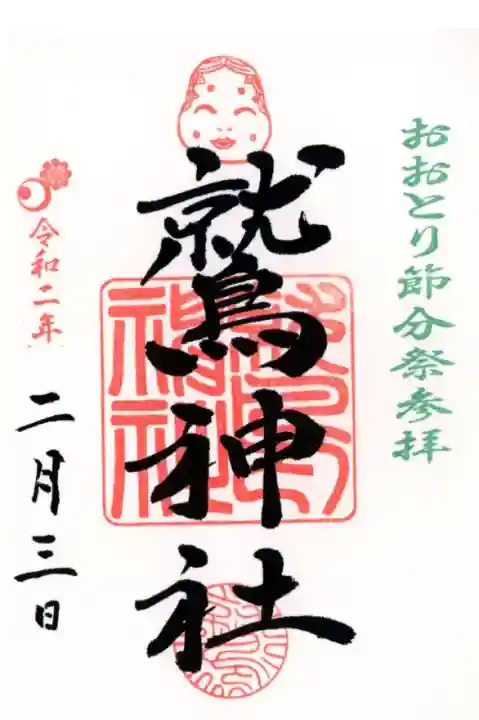 おおとり節分祭参拝
鷲神社
令和二年
二月三日